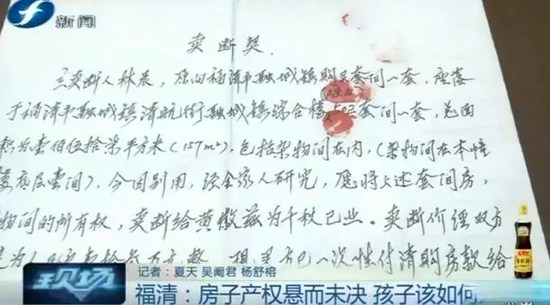 新闻
卖断契
立卖断人林辰，原向福清市融城镇购买套间一套，座落
于福清市融城镇清航街融城镇综合楼502套间一套，总面
积为壹佰伍拾柒平方米（157m²），包括架物间在内，（架物间在本幢
层壹间）。今因别用，经全家人研究，愿将上述套间房，
物间的所有权，卖断给黄傲兹为千秋己业。卖断价经双方
一次性付清购房款给
现场
记者：夏天 吴阄君 杨舒榕
福清：房子产权悬而未决 孩子该如何